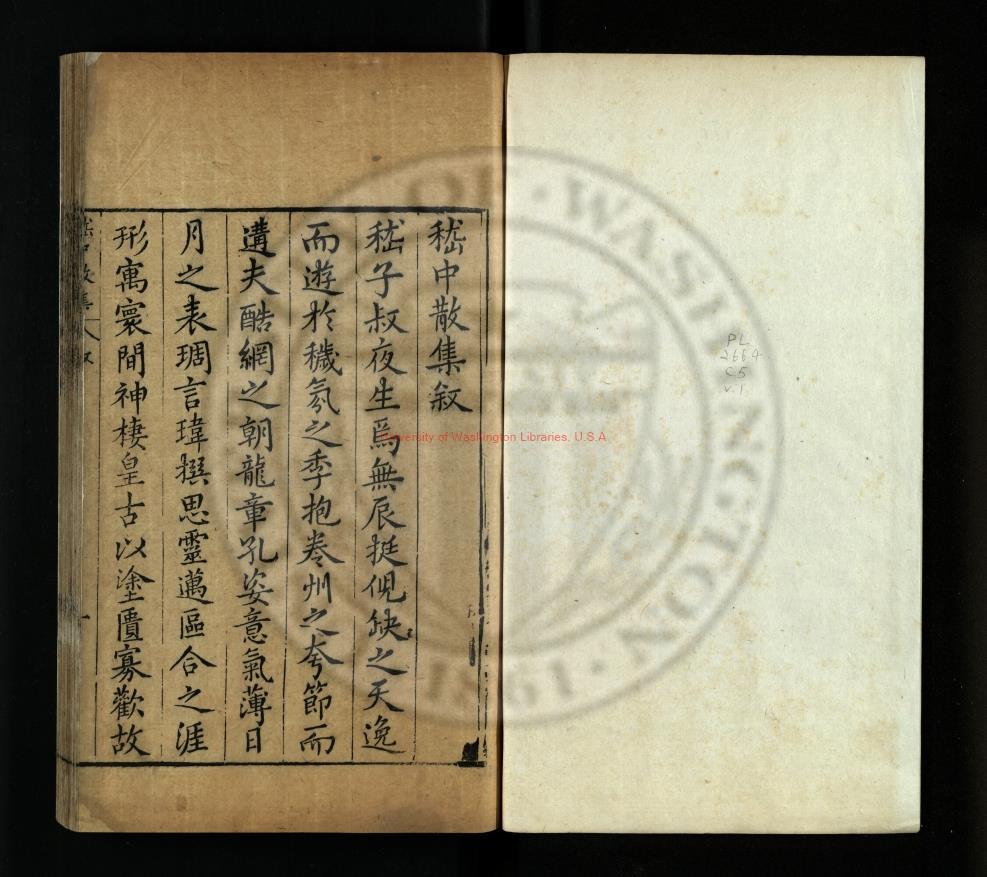 嵇中散集叙
嵇子叔夜生焉無辰挺俔缺之天逸
而遊於穢氛之季抱卷州之夸節而
遘夫酷網之朝龍章孔姿意氣薄日
月之表琱言瑋撰思靈邁區合之涯
形寓寰間神棲皇古以塗匱寡歡故
嵇中散集 叙
一
PL
2664
C5
v.1
University of Washington Libraries, U.S.A
WASHINGTON
1861